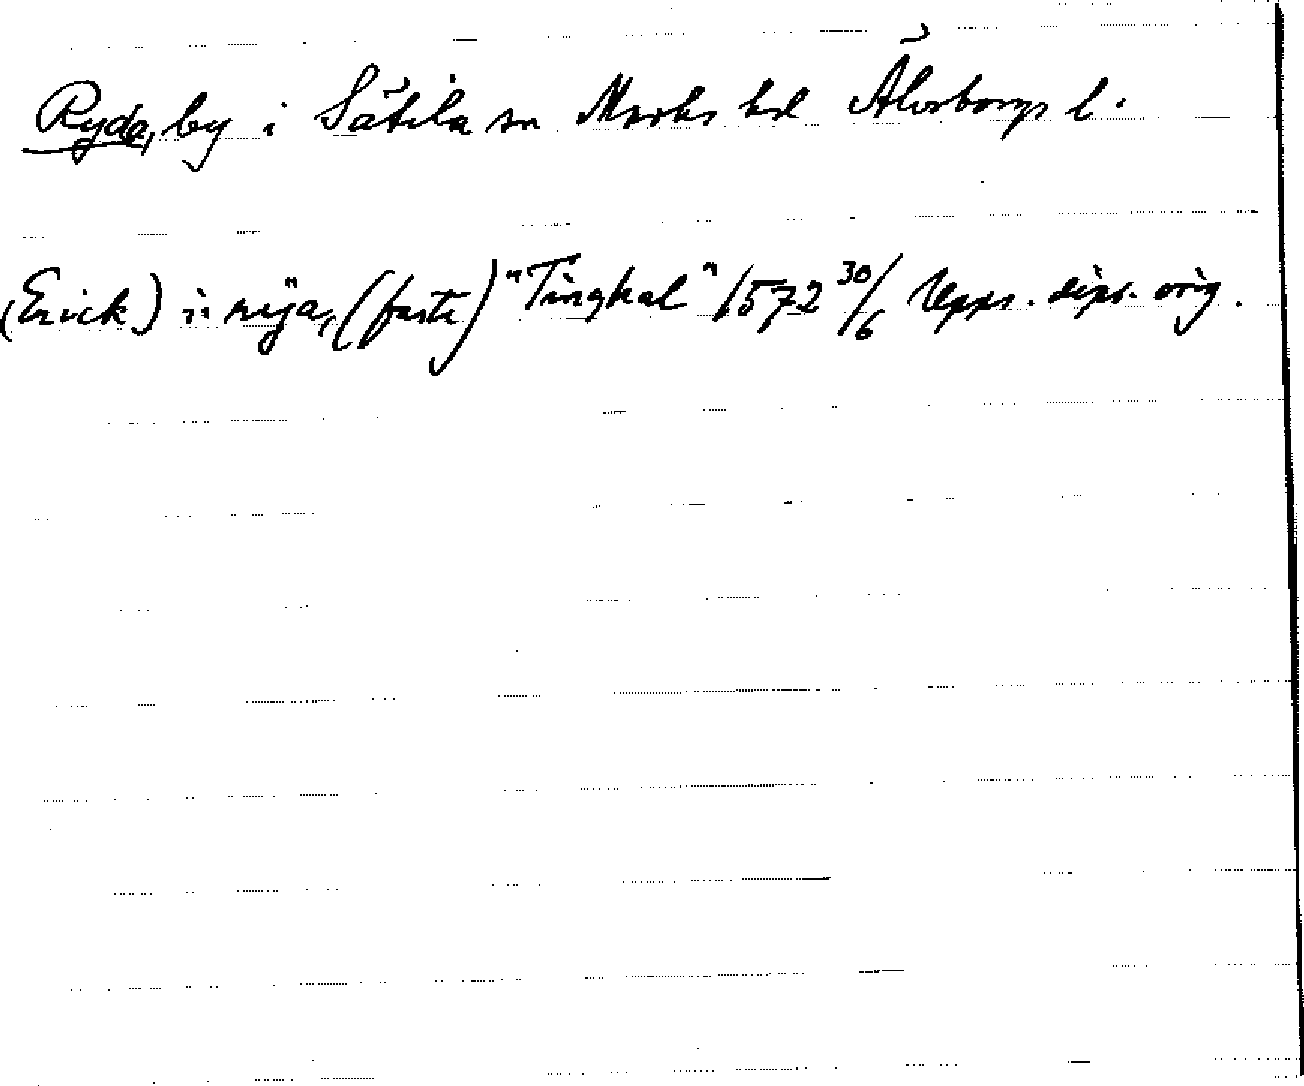 Ryda, by i Sätila sn Marks hd Älvsborgs l.
(Erick) i: rÿa, (faste) "Tingkal" 1572 30/6 Upps. dipl. orig.